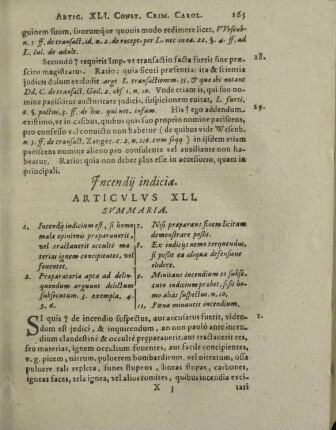 ARTIC. XLI. CONST. CRIM. CAROL. 165
guinem suum, suorumque quouis modo redimere licet, VVesenb.
n. 5. ff. de transact, id, n. 2. de recept. per L. nec in ea. 22. §. 4. ff, ad
L, iul. de adult.
Secundò † requirit Imp. vt transactio facta fuerit sine præ- 28.
scitu magistratus. Ratio: quia sicuti præsentia: ita & scientia
judicis dolum excludit
Dd. C. de transact, Gail. 2, obs. 1, n. 10. Vnde etiam is, qui suo no-
mine paciscitur auctoritate judicis, suspicionem euitat,
His † ego addendum. 29.
existimo, vt in casibus, quibus quis suo proprio nomine paciscens,
pro confesso vel conuicto non habetur (de quibus vide Wesenb.
n. 5. ff. de transact. Zanger. c. 2, n. 116. cum seqq.) in ijsdem etiam
paciscens nomine alieno pro consulente vel auxiliante non ha-
beatur. Ratio: quia non debet plus esse in accessorio, quam in
principali.
Incendij indicia.
ARTICVLVS XLI.
SVMMARIA.
1. Incendij indicium est, si homo
male opinionis præparauerit,
vel tractauerit occultè ma-
terias ignem concipientes, vel
fouentes.
2. Præparatoria apta ad delin-
quendum arguunt delictum
subsecutum. 3. exempla, 4
5. 6.
7. Nisi præparans finem licitum
demonstrare possit.
8. Ex indicijs nemo torquendus,
si possit ea aliqua defensione
eludere.
9. Minitans incendium eo subse-
cuto indicium præbet, si sit ho-
mo aliàs suspectus, n. 10.
11. Pœna minantis incendium.
SI quis † de incendio suspectus, aut accusatus fuerit, viden- 1.
dum est judici, & inquirendum, an non paulò ante incen-
dium clandestinè & occultè præparauerit, aut tractauerit res,
seu materias, ignem occultum fouentes, aut facile concipientes,
v. g. picem, nitrum, puluerem bombardicum, vel nitratum, ollas
puluere tali repleta, funes stupeos, lineas stupas, carbones,
igneas faces, tela ignea, vel alios fomites, quibus incendia exci-
X 3 tari